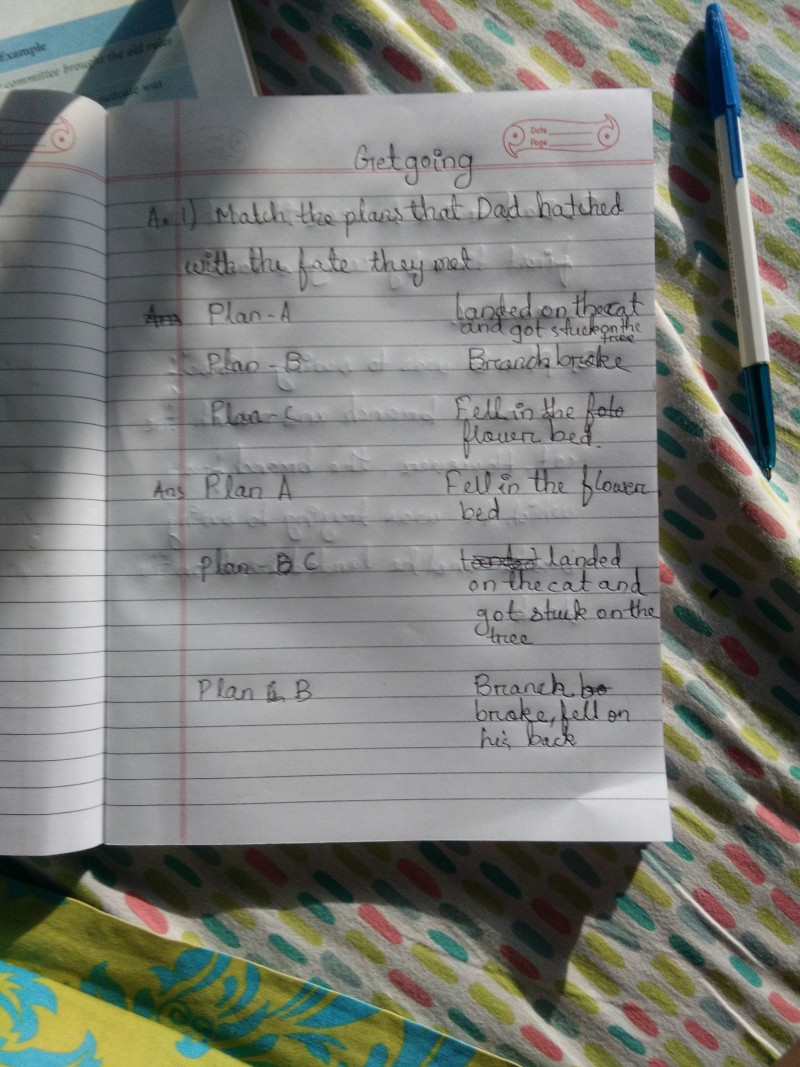 Example
committee brought the old rules
was
Date
Page
Get going
A. 1) Match the plans that Dad hatched
with the fate they met.
Ans Plan-A landed on the cat
and got stuck on the
tree
Plan-B Branch broke
Plan-C Fell in the fate
flower bed.
Ans Plan A Fell in the flower
bed
Plan-B C landed
on the cat and
got stuck on the
tree
Plan B Branch bo
broke, fell on
his back